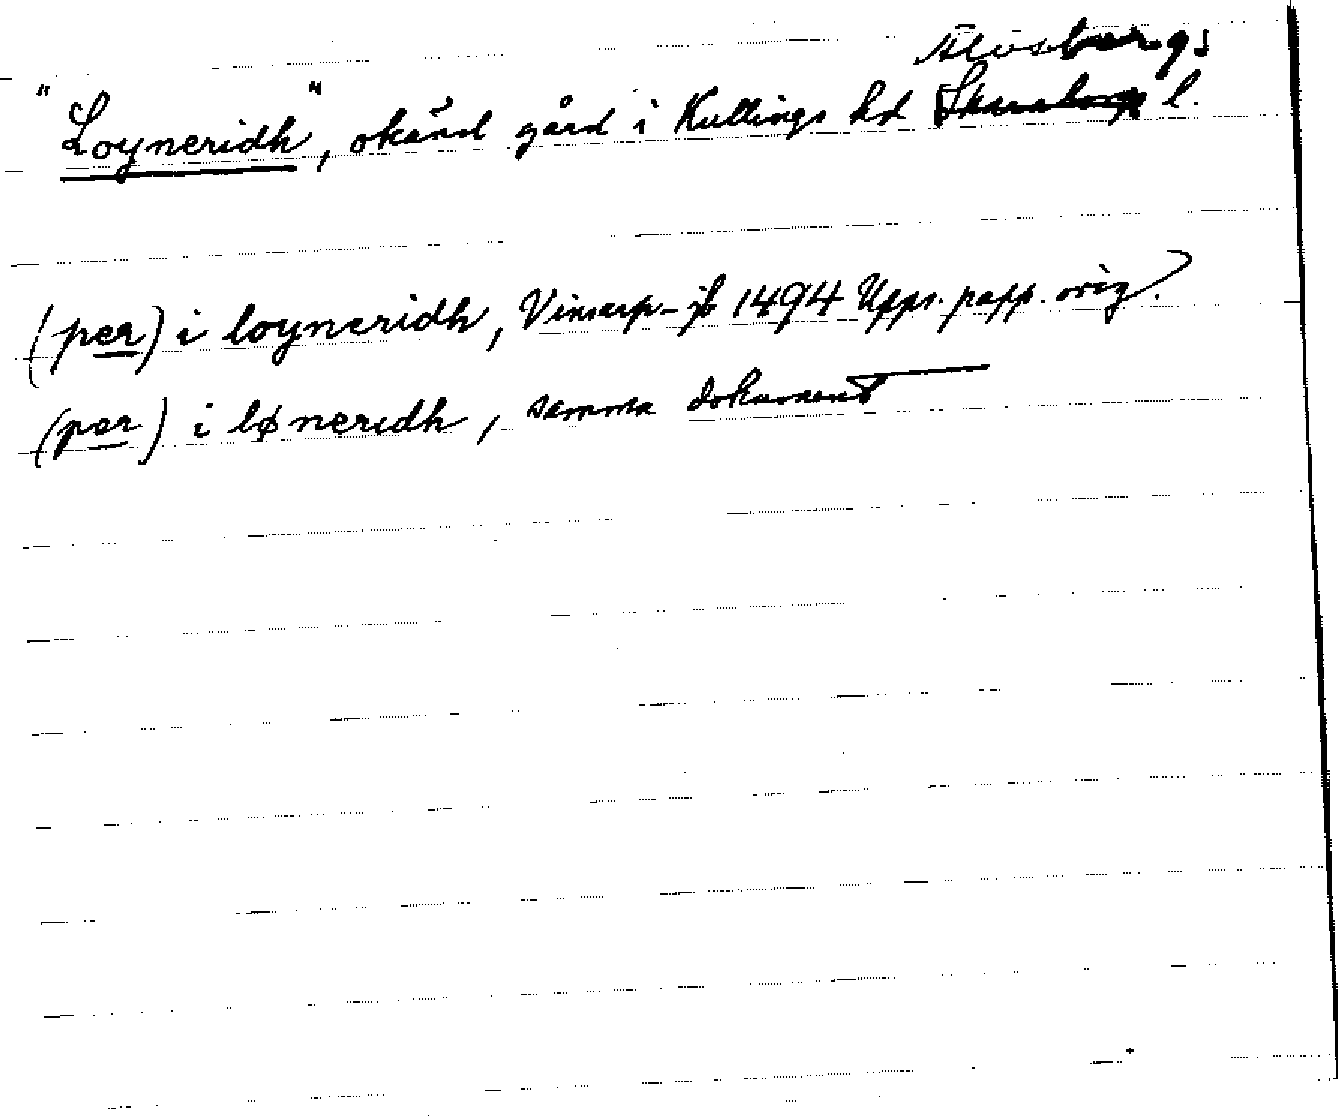 Älvsborgs
"Loyneridh", okänd gård i Kullings hd Skaraborgs l.
(per) i loyneridh, Vinsarp-jb 1494 Upps. papp. orig.
(per) i løneridh, samma dokument